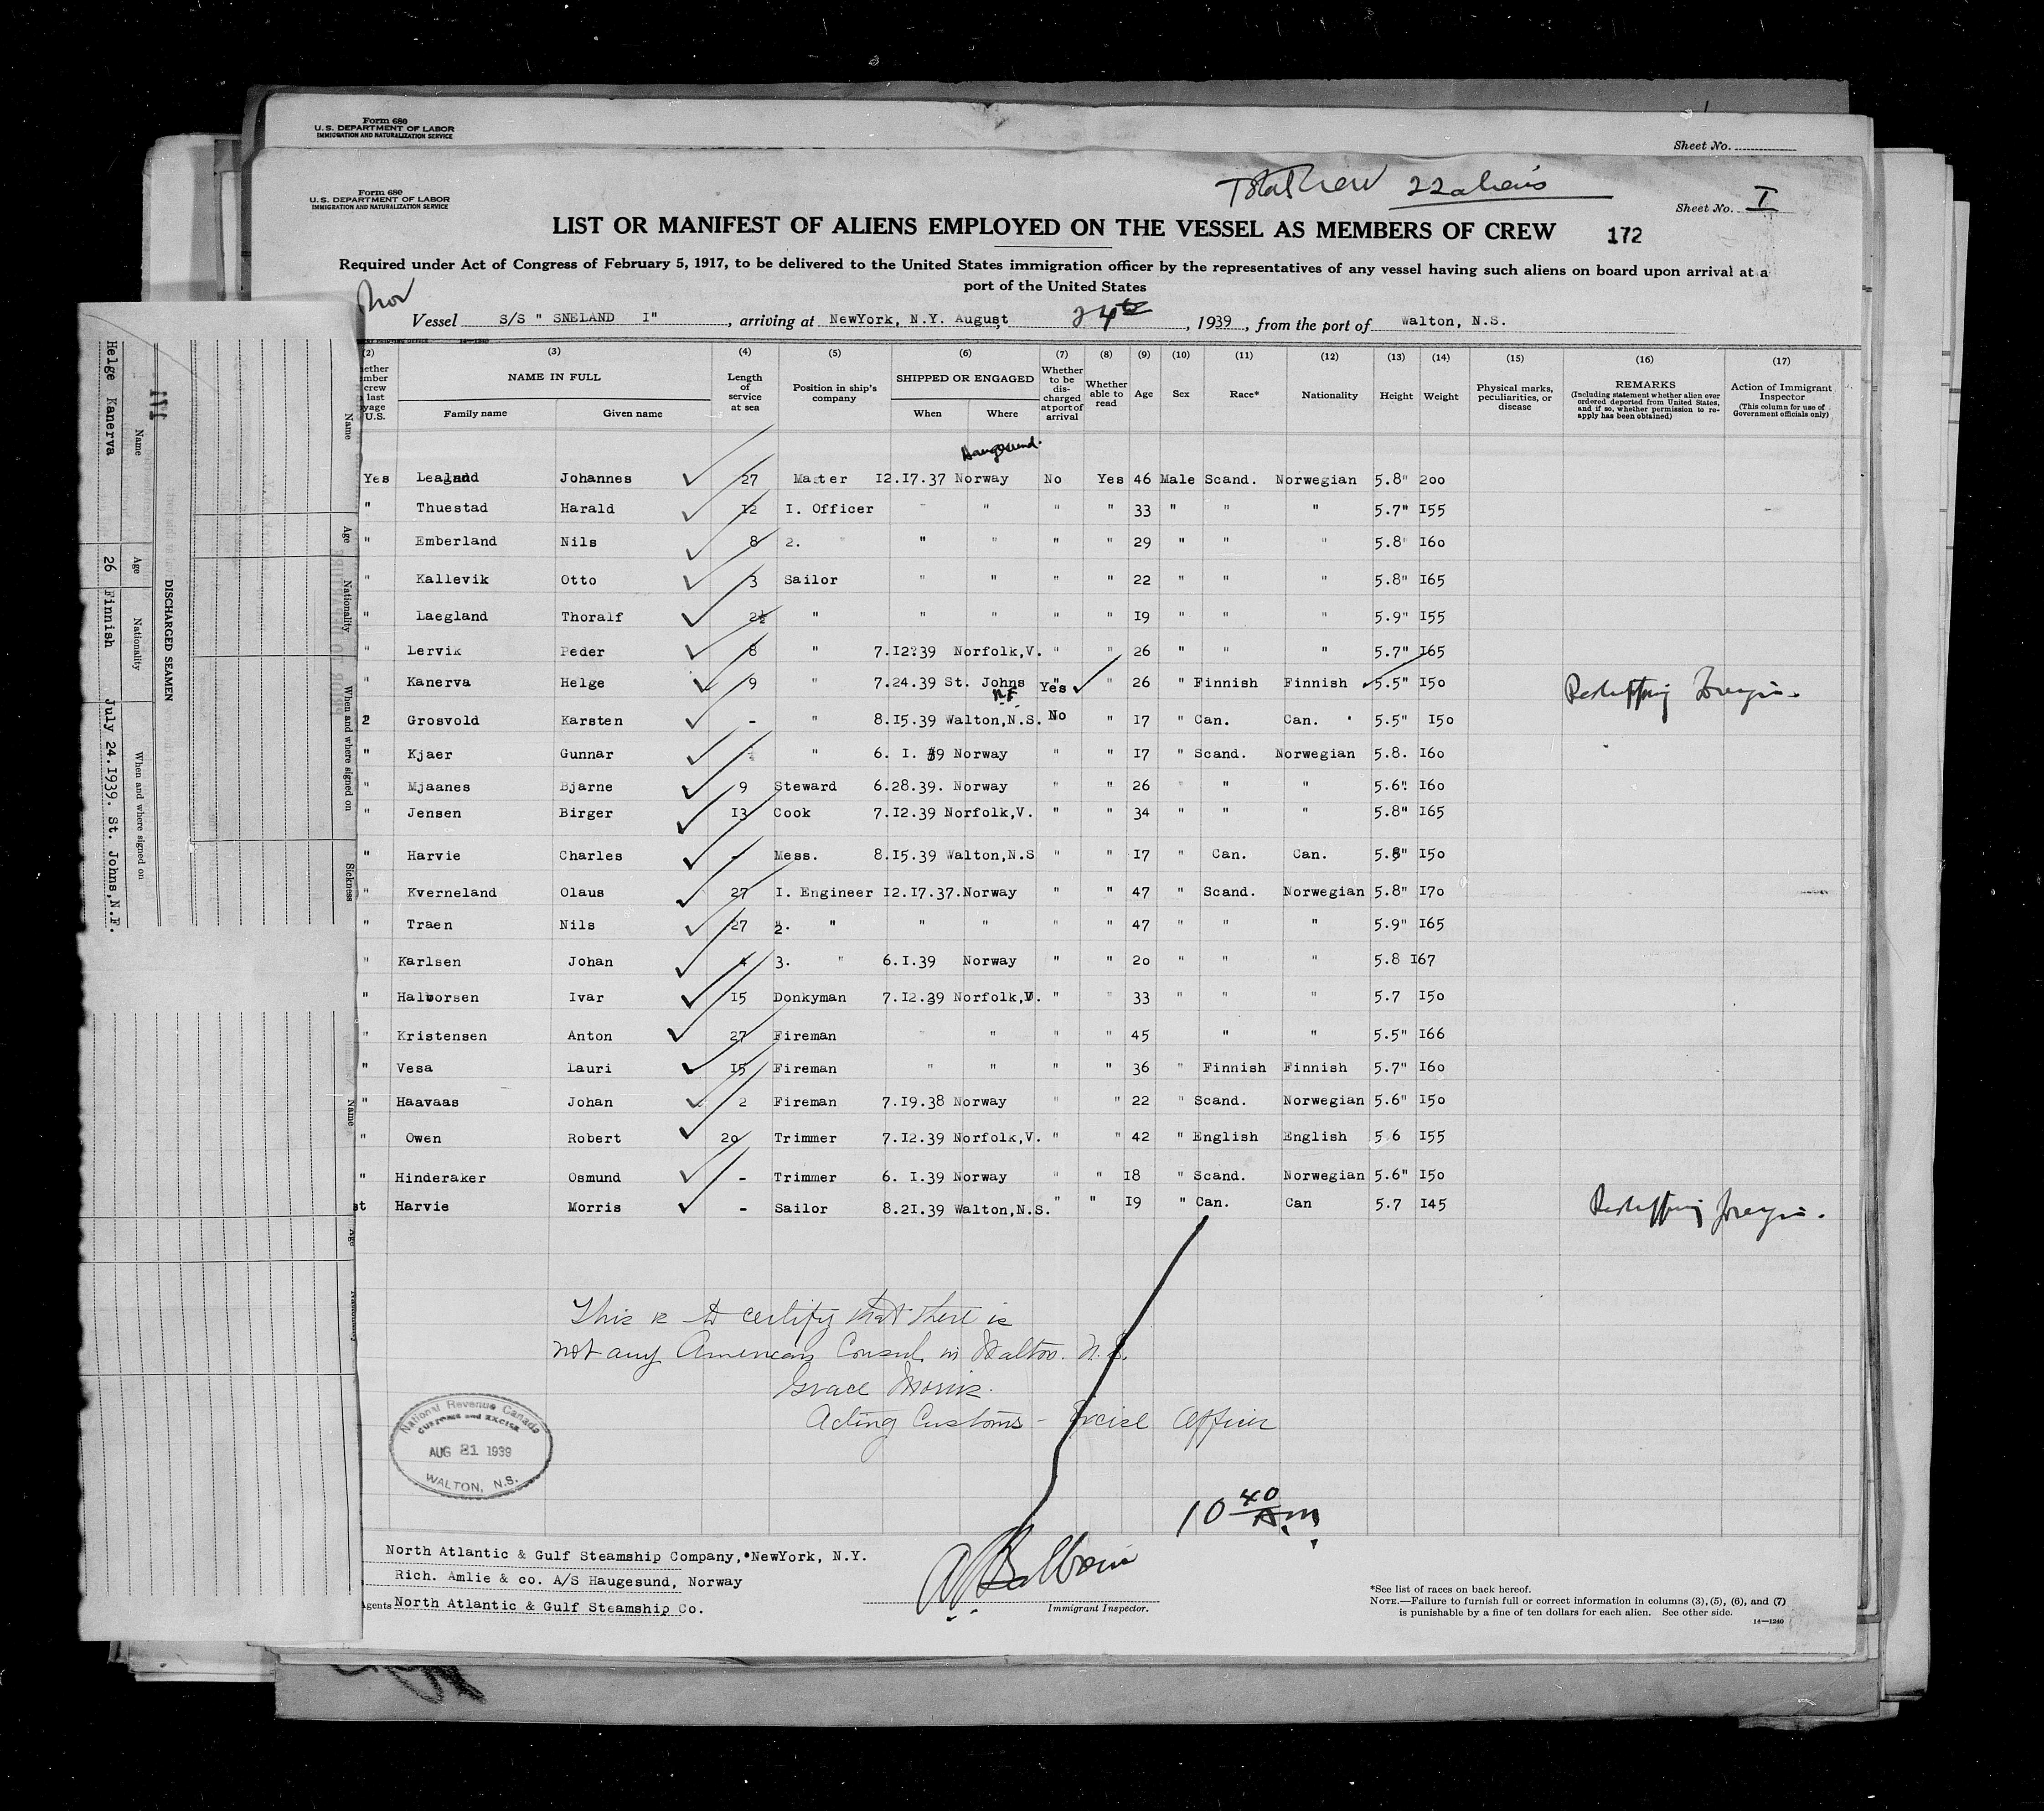 Form 680
U. S. DEPARTMENT OF LABOR
IMMIGRATION AND NATURALIZATION SERVICE
Sheet No.
Form 680
U. S. DEPARTMENT OF LABOR
IMMIGRATION AND NATURALIZATION SERVICE
Total Crew 22 aliens
Sheet No. I
LIST OR MANIFEST OF ALIENS EMPLOYED ON THE VESSEL AS MEMBERS OF CREW 172
Required under Act of Congress of February 5, 1917, to be delivered to the United States immigration officer by the representatives of any vessel having such aliens on board upon arrival at a
port of the United States
Nor
Vessel S/S " SNELAND I" , arriving at NewYork, N.Y. August 24th , 1939 , from the port of Walton, N.S.
(2) (3) (4) (5) (6) (7) (8) (9) (10) (11) (12) (13) (14) (15) (16) (17)
NAME IN FULL Family name Given name Length of service at sea Position in ship's company SHIPPED OR ENGAGED When Where Whether to be discharged at port of arrival Whether able to read Age Sex Race* Nationality Height Weight Physical marks, peculiarities, or disease REMARKS (Including statement whether alien ever ordered deported from United States, and if so, whether permission to reapply has been obtained) Action of Immigrant Inspector (This column for use of Government officials only)
Haugesund.
Yes Lealand Johannes 27 Master 12.17.37 Norway No Yes 46 Male Scand. Norwegian 5.8" 200
" Thuestad Harald 12 I. Officer " " " " 33 " " " 5.7" I55
" Emberland Nils 8 2. " " " " " 29 " " " 5.8" I60
" Kallevik Otto 3 Sailor " " " " 22 " " " 5.8" I65
" Laegland Thoralf 2½ " " " " " I9 " " " 5.9" I55
" Lervik Peder 8 " 7.I2.39 Norfolk,V. " " 26 " " " 5.7" I65
" Kanerva Helge 9 " 7.24.39 St. Johns N.F. Yes " 26 " Finnish Finnish 5.5" I50 Reshipping Foreign.
2 Grosvold Karsten - " 8.I5.39 Walton,N.S. No " I7 " Can. Can. 5.5" I50
" Kjaer Gunnar " 6. I. 39 Norway " " I7 " Scand. Norwegian 5.8. I60
" Mjaanes Bjarne 9 Steward 6.28.39. Norway " " 26 " " " 5.6" I60
" Jensen Birger I3 Cook 7.I2.39 Norfolk,V. " " 34 " " " 5.8" I65
" Harvie Charles - Mess. 8.I5.39 Walton,N.S " " I7 " Can. Can. 5.8" I50
" Kverneland Olaus 27 I. Engineer I2.I7.37. Norway " " 47 " Scand. Norwegian 5.8" I70
" Traen Nils 27 2. " " " " " 47 " " " 5.9" I65
" Karlsen Johan 4 3. " 6.I.39 Norway " " 20 " " " 5.8 I67
" Halvorsen Ivar I5 Donkyman 7.I2.39 Norfolk,V. " " 33 " " " 5.7 I50
" Kristensen Anton 27 Fireman " " " " 45 " " 5.5" I66
" Vesa Lauri I5 Fireman " " " " 36 " Finnish Finnish 5.7" I60
" Haavaas Johan 2 Fireman 7.I9.38 Norway " " 22 " Scand. Norwegian 5.6" I50
" Owen Robert 20 Trimmer 7.I2.39 Norfolk,V. " " 42 " English English 5.6 I55
" Hinderaker Osmund - Trimmer 6. I.39 Norway " " I8 " Scand. Norwegian 5.6" I50
st Harvie Morris - Sailor 8.2I.39 Walton,N.S. " " I9 " Can. Can 5.7 I45 Reshipping Foreign.
This is to certify that there is
not any American Consul in Walton. N.S.
Grace Morris.
Acting Customs - Excise Officer
National Revenue Canada
CUSTOMS and EXCISE
AUG 21 1939
WALTON, N.S.
10 40 A.m.
North Atlantic & Gulf Steamship Company, NewYork, N.Y.
Rich. Amlie & co. A/S Haugesund, Norway
Agents North Atlantic & Gulf Steamship Co.
Immigrant Inspector.
*See list of races on back hereof.
NOTE.—Failure to furnish full or correct information in columns (3), (5), (6), and (7)
is punishable by a fine of ten dollars for each alien. See other side.
14—1240
171
DISCHARGED SEAMEN
Name Age Nationality When and where signed on
Helge Kanerva 26 Finnish July 24.I939. St. Johns,N.F.
Name Age Nationality When and where signed on Sickness
Name Age